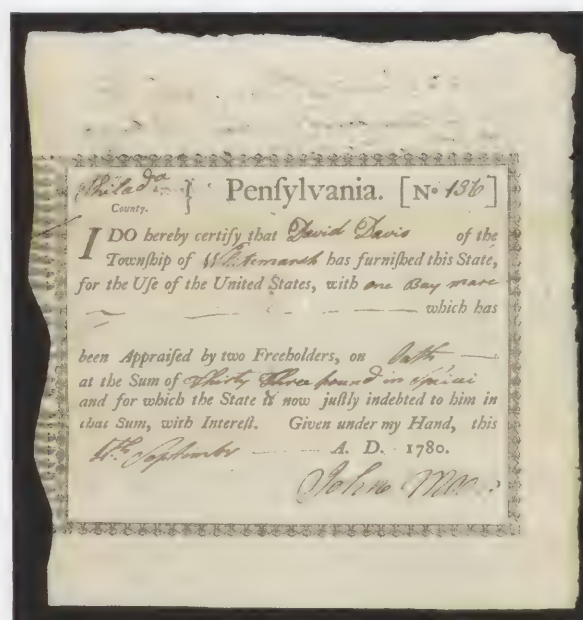 Philada } Penſylvania. [No 136]
County.
I DO hereby certify that David Davis of the
Townſhip of Whitemarsh has furniſhed this State,
for the Uſe of the United States, with one Bay mare
which has
been Appraiſed by two Freeholders, on Oath
at the Sum of Thirty Three pound in specie
and for which the State is now juſtly indebted to him in
that Sum, with Intereſt. Given under my Hand, this
September A. D. 1780.
John